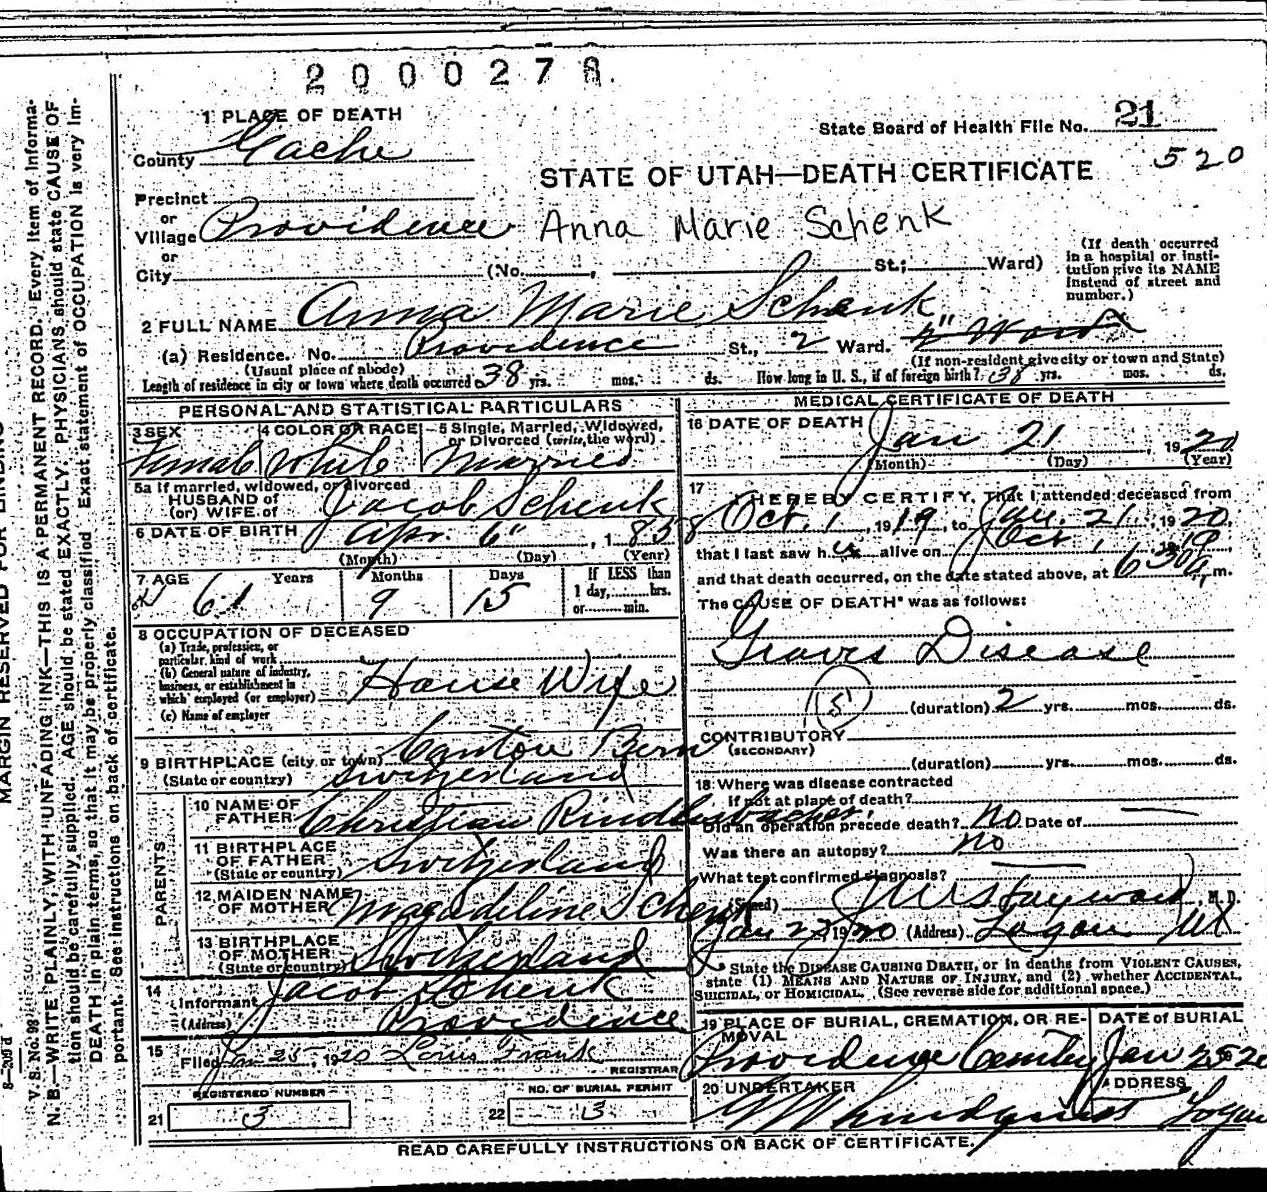 2000278
1 PLACE OF DEATH
State Board of Health File No. 21
County Cache
520
STATE OF UTAH—DEATH CERTIFICATE
Precinct
or
Village Providence Anna Marie Schenk
or
City (No. , St.; Ward)
(If death occurred
in a hospital or insti-
tution give its NAME
instead of street and
number.)
2 FULL NAME Anna Marie Schenk
(a) Residence. No. Providence St., 2 Ward. 2" Ward
(Usual place of abode) (If non-resident give city or town and State)
Length of residence in city or town where death occurred 38 yrs. mos. ds. How long in U. S., if of foreign birth? 38 yrs. mos. ds.
PERSONAL AND STATISTICAL PARTICULARS
3 SEX 4 COLOR OR RACE 5 Single, Married, Widowed,
or Divorced (write the word)
Female White Married
5a If married, widowed, or divorced
HUSBAND of
(or) WIFE of Jacob Schenk
6 DATE OF BIRTH Apr. 6" , 1 858
(Month) (Day) (Year)
7 AGE Years Months Days If LESS than
1 day, hrs.
or min.
61 9 15
8 OCCUPATION OF DECEASED
(a) Trade, profession, or
particular kind of work
(b) General nature of industry,
business, or establishment in
which employed (or employer) House Wife
(c) Name of employer
9 BIRTHPLACE (city or town) Canton Bern
(State or country) Switzerland
PARENTS
10 NAME OF
FATHER Christian Rindlisbacher
11 BIRTHPLACE
OF FATHER
(State or country) Switzerland
12 MAIDEN NAME
OF MOTHER Magadeline Schenk
13 BIRTHPLACE
OF MOTHER
(State or country) Switzerland
14
Informant Jacob Schenk
(Address) Providence
15
Filed Jan 25, 1920 Louis Frank
REGISTRAR
REGISTERED NUMBER
21 3
NO. OF BURIAL PERMIT
22 13
MEDICAL CERTIFICATE OF DEATH
16 DATE OF DEATH
Jan 21 , 1920
(Month) (Day) (Year)
17
I HEREBY CERTIFY, That I attended deceased from
Oct. 1, 1919, to Jan. 21, 1920,
that I last saw her alive on Oct 1, 1919
and that death occurred, on the date stated above, at 6 30 a m.
The CAUSE OF DEATH* was as follows:
Graves Disease
5 (duration) 2 yrs. mos. ds.
CONTRIBUTORY
(SECONDARY)
(duration) yrs. mos. ds.
18 Where was disease contracted
If not at place of death?
Did an operation precede death? No Date of
Was there an autopsy? No
What test confirmed diagnosis?
(Signed) , M. D.
Jan 22, 1920 (Address) Logan Ut
State the DISEASE CAUSING DEATH, or in deaths from VIOLENT CAUSES,
state (1) MEANS AND NATURE OF INJURY, and (2) whether ACCIDENTAL,
SUICIDAL, or HOMICIDAL. (See reverse side for additional space.)
19 PLACE OF BURIAL, CREMATION, OR RE-
MOVAL
DATE of BURIAL
Providence Cemtry Jan 25 20
20 UNDERTAKER ADDRESS
Lindquist Logan
READ CAREFULLY INSTRUCTIONS ON BACK OF CERTIFICATE.
MARGIN RESERVED FOR BINDING
V. S. No. 98
N. B.—WRITE PLAINLY, WITH UNFADING INK—THIS IS A PERMANENT RECORD. Every item of informa-
tion should be carefully supplied. AGE should be stated EXACTLY. PHYSICIANS should state CAUSE OF
DEATH in plain terms, so that it may be properly classified. Exact statement of OCCUPATION is very im-
portant. See instructions on back of certificate.